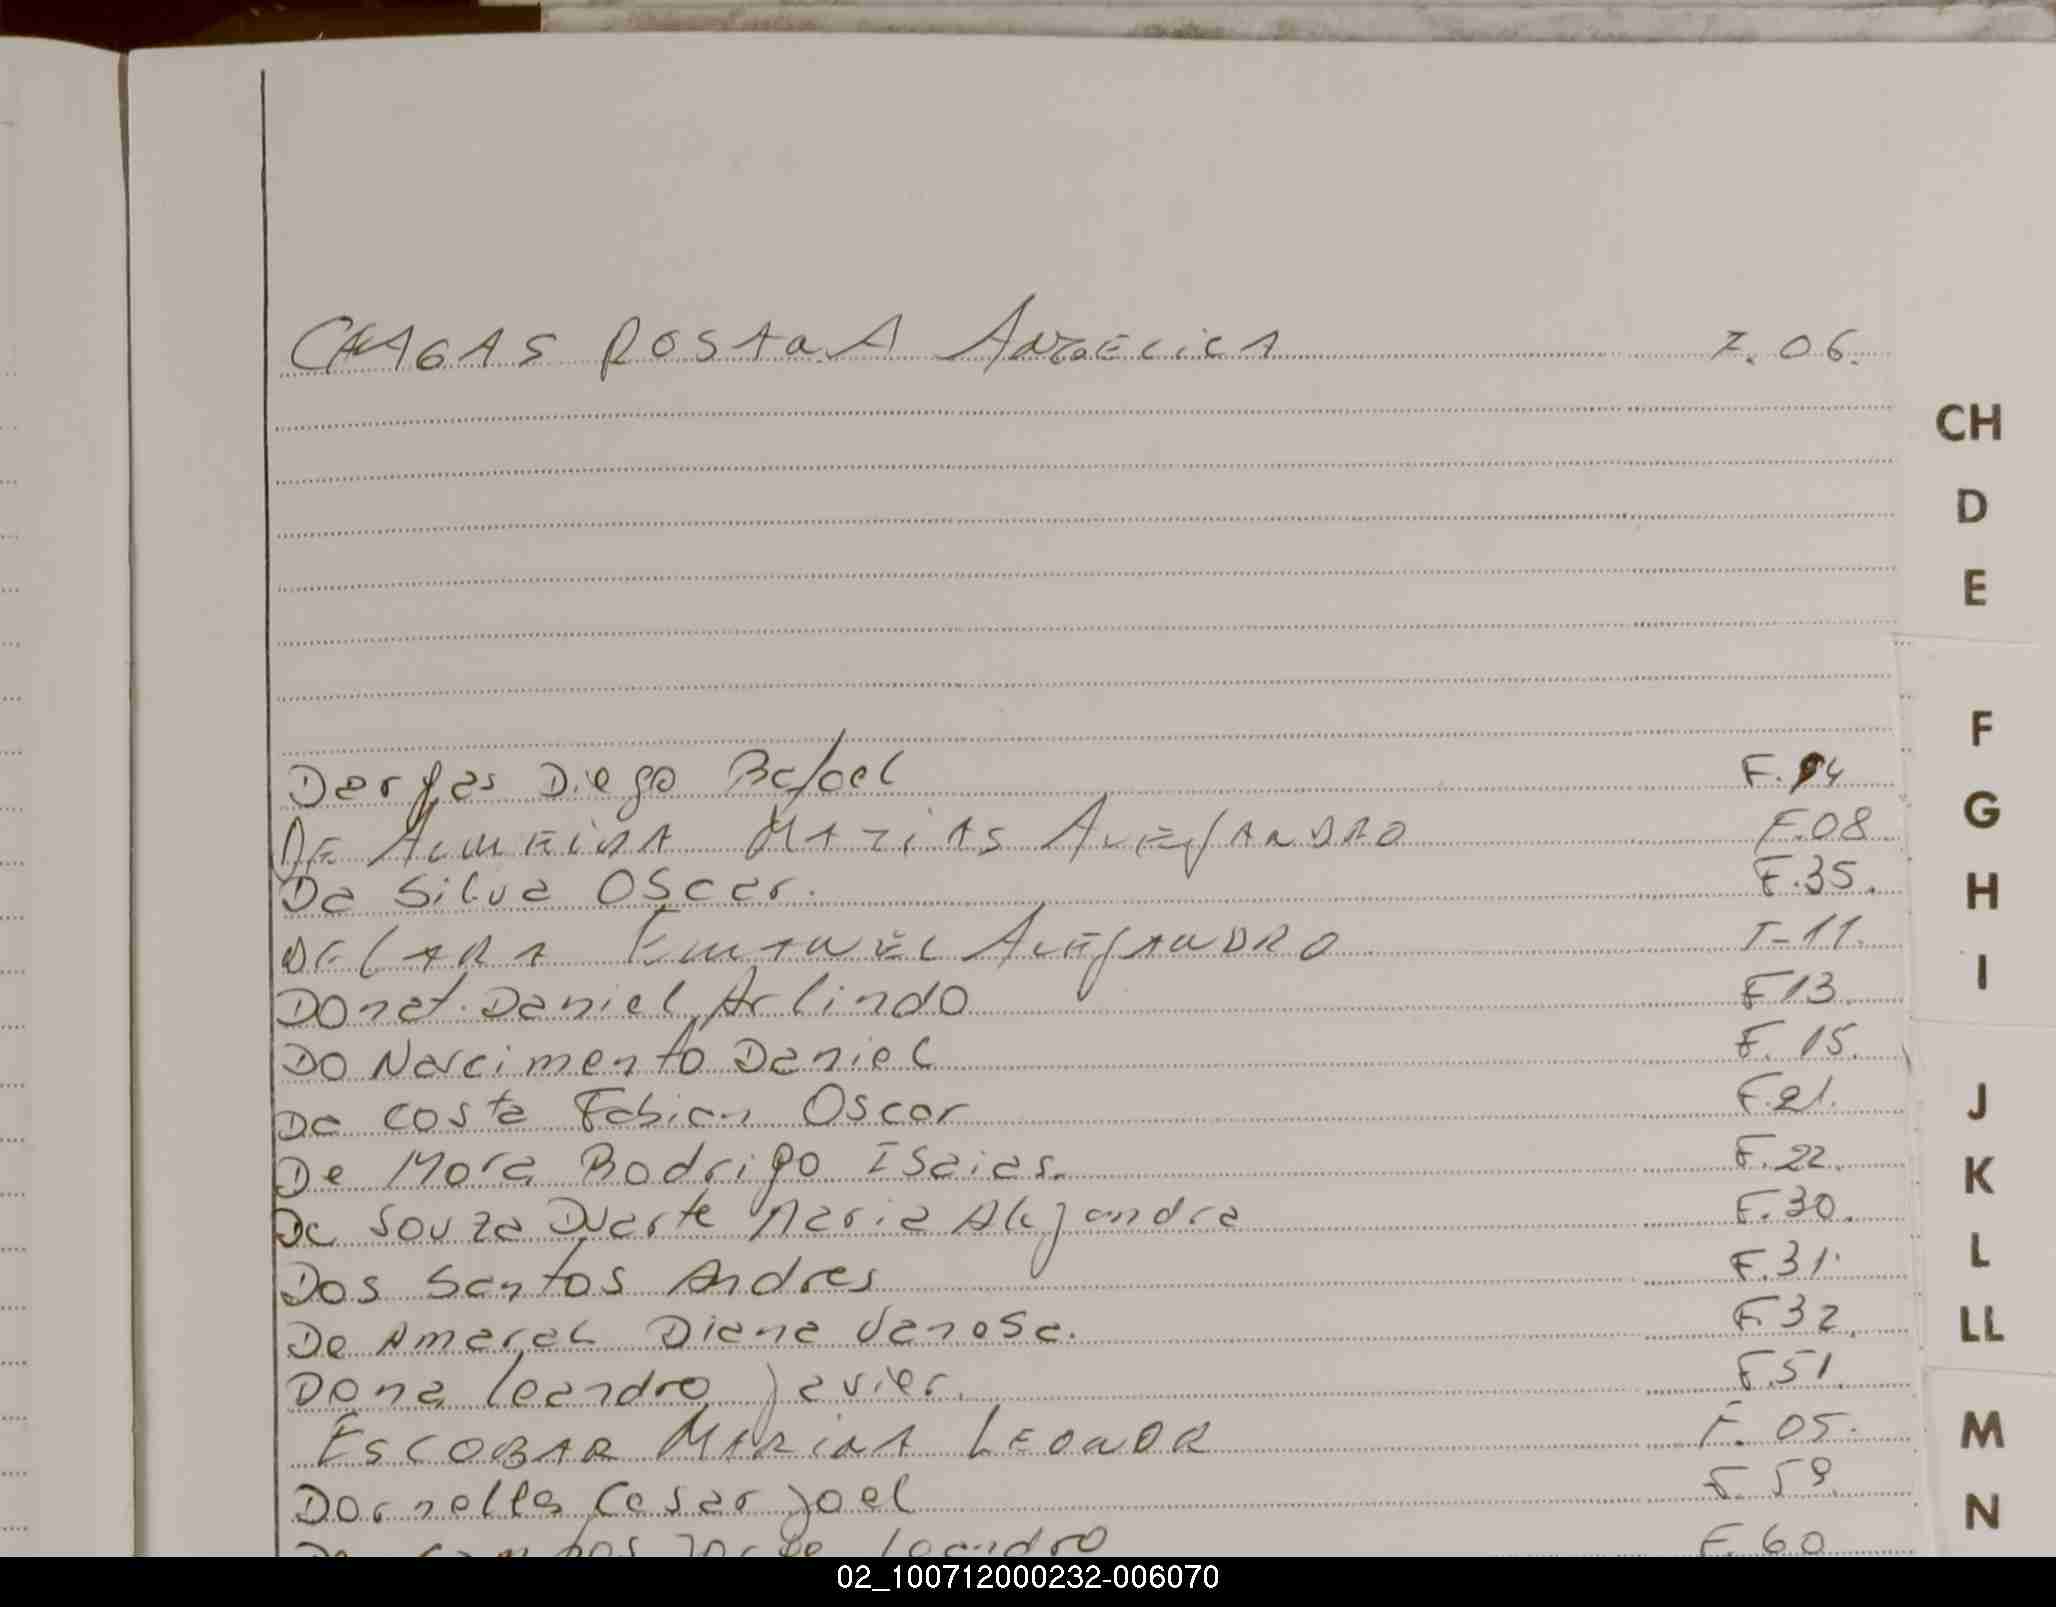 CHAGAS ROSANA ANGELICA F. 06.
CH
D
E
F
G
H
I
J
K
L
LL
M
N
Dargas Diego Rafael F. 94
DE ALMEIDA MATIAS ALEJANDRO F.08
Da Silva Oscar. F.35.
DE LARA EMANUEL ALEJANDRO F-11.
Donat. Daniel Arlindo F13.
Do Narcimento Daniel F. 15.
Da costa Fabian Oscar F.21.
De Mora Rodrigo Isaias. F.22.
De Souza Duarte Maria Alejandra F.30.
Dos Santos Andres F.31.
De Amaral Diana Vanosa. F.32.
Dona Leandro Javier. F.51.
ESCOBAR MARINA LEONOR F. 05.
Dornelles Cesar Joel F. 59.
De Campos Jorge Leandro F. 60
02_100712000232-006070